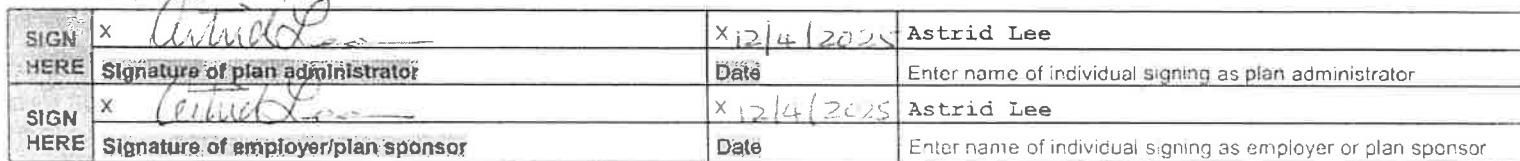 SIGN HERE
x Astrid Lee x 12/4/2025 Astrid Lee
Signature of plan administrator Date Enter name of individual signing as plan administrator
SIGN HERE
x Astrid Lee x 12/4/2025 Astrid Lee
Signature of employer/plan sponsor Date Enter name of individual signing as employer or plan sponsor